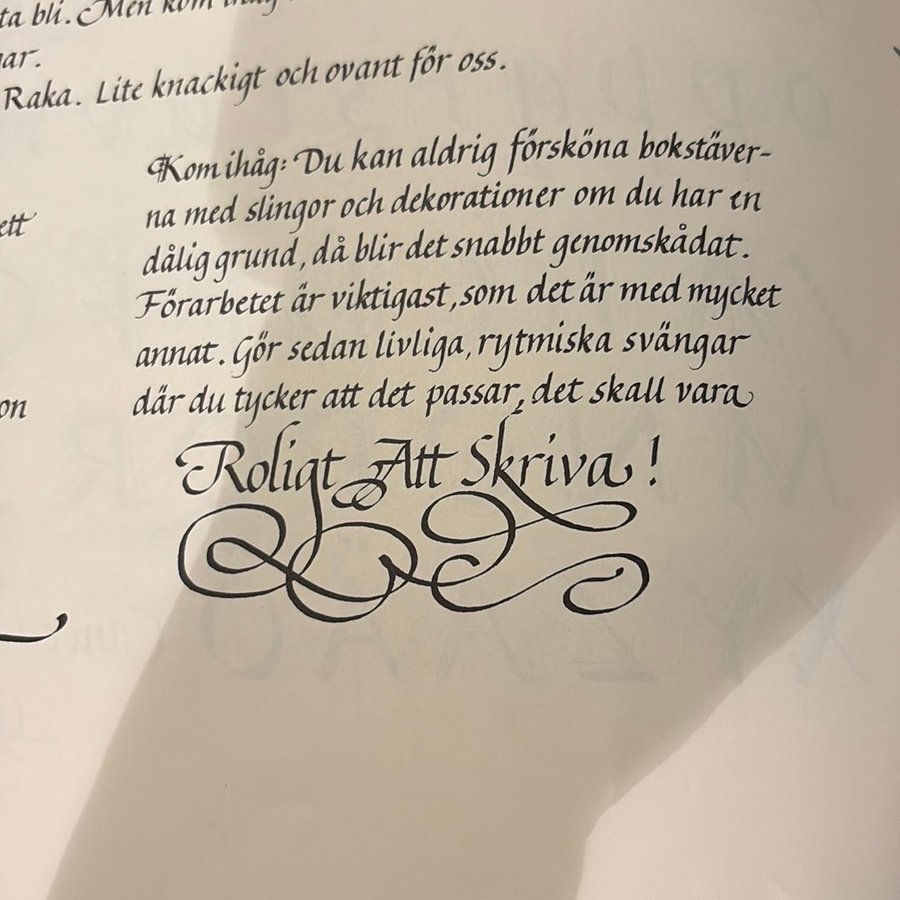 ta bli. Men kom ihåg
ar.
Raka. Lite knackigt och ovant för oss.
Kom ihåg: Du kan aldrig försköna bokstäver-
na med slingor och dekorationer om du har en
ett
dålig grund, då blir det snabbt genomskådat.
Förarbetet är viktigast, som det är med mycket
annat. Gör sedan livliga, rytmiska svängar
on
där du tycker att det passar, det skall vara
Roligt Att Skriva!